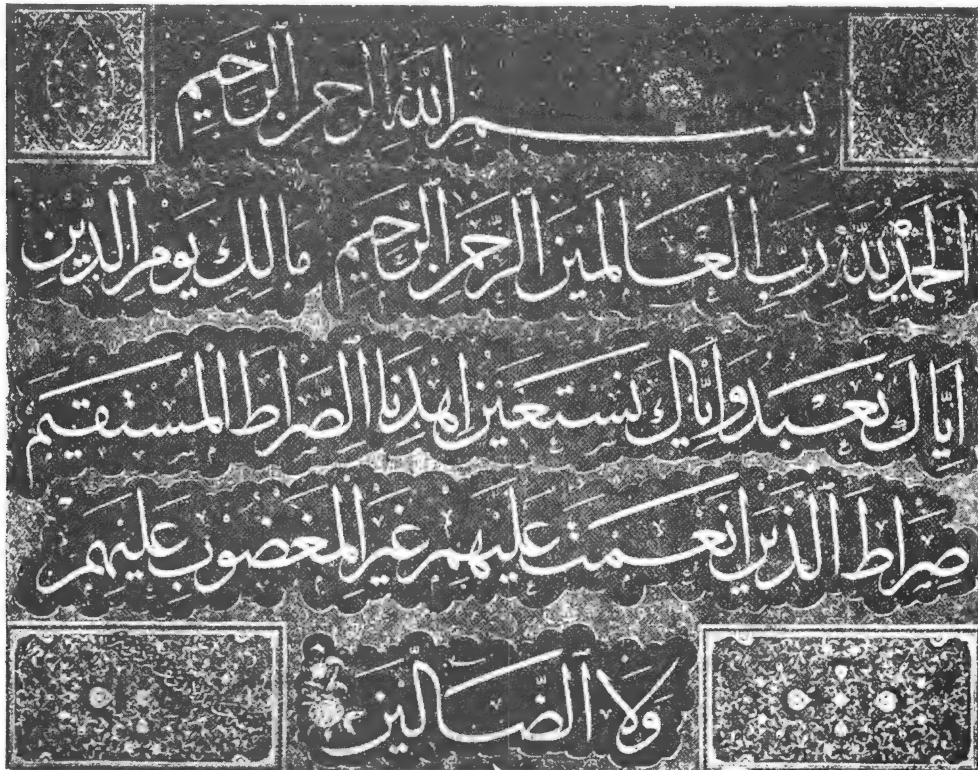 بِسْمِ اللهِ الرَّحْمٰنِ الرَّحِيمِ
اَلْحَمْدُ لِلّٰهِ رَبِّ الْعَالَمِينَ الرَّحْمٰنِ الرَّحِيمِ مَالِكِ يَوْمِ الدِّينِ
اِيَّاكَ نَعْبُدُ وَاِيَّاكَ نَسْتَعِينُ اِهْدِنَا الصِّرَاطَ الْمُسْتَقِيمَ
صِرَاطَ الَّذِينَ اَنْعَمْتَ عَلَيْهِمْ غَيْرِ الْمَغْضُوبِ عَلَيْهِمْ
وَلَا الضَّالِّينَ